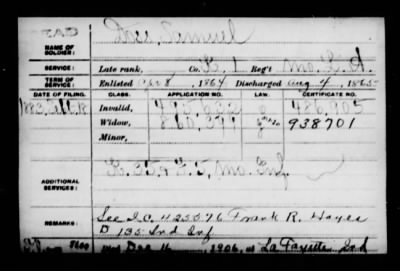 Samuel
NAME OF SOLDIER:
SERVICE: Late rank, Co. 1 Reg't Mo. L. A.
TERM OF SERVICE: Enlisted 8, 1864 Discharged Aug 4, 1865
DATE OF FILING. CLASS. APPLICATION NO. LAW. CERTIFICATE NO.
Invalid, 495,032 486,905
Widow, 860,371 938701
Minor,
ADDITIONAL SERVICES: 25 & 5, Mo. Inf.
REMARKS: See I.C. 425576 Frank R. Hayes
D 135 Ind Inf
Dec 16, 1906, at La Fayette Ind